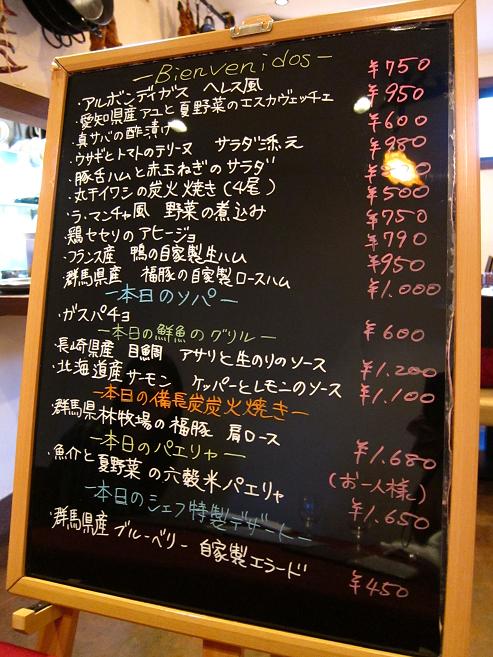 －Bienvenidos－
・アルボンディガス ヘレス風 ¥750
・愛知県産アユと夏野菜のエスカヴェッチェ ¥950
・真サバの酢漬け ¥600
・ウサギとトマトのテリーヌ サラダ添え ¥980
・豚舌ハムと赤玉ねぎのサラダ
・丸干イワシの炭火焼き(4尾) ¥500
・ラ・マンチャ風 野菜の煮込み ¥750
・鶏セセリのアヒージョ ¥790
・フランス産 鴨の自家製生ハム ¥950
・群馬県産 福豚の自家製ロースハム ¥1.000
－本日のソパ－
・ガスパチョ ¥600
－本日の鮮魚のグリル－
・長崎県産 目鯛 アサリと生のりのソース ¥1.200
・北海道産サーモン ケッパーとレモニのソース ¥1.100
－本日の備長炭炭火焼き－
群馬県林牧場の福豚 肩ロース ¥1.680
－本日のパエリャ－ (お一人様)
・魚介と夏野菜の六穀米パエリャ ¥1.650
－本日のシェフ特製デザート－
・群馬県産ブルーベリー 自家製エラード ¥450